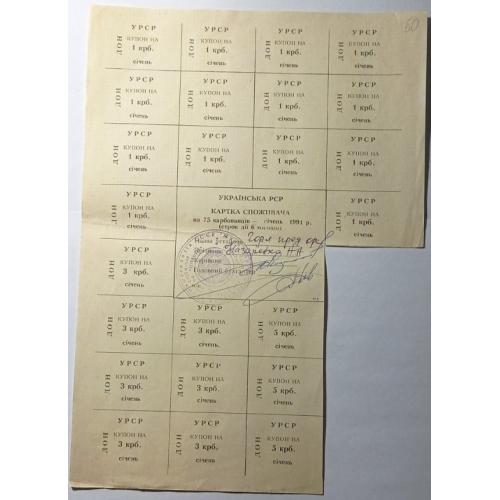 60
УРСР УРСР УРСР УРСР
ДОН КУПОН НА ДОН КУПОН НА ДОН КУПОН НА ДОН КУПОН НА
1 крб. 1 крб. 1 крб. 1 крб.
січень січень січень січень
УРСР УРСР УРСР УРСР
ДОН КУПОН НА ДОН КУПОН НА ДОН КУПОН НА ДОН КУПОН НА
1 крб. 1 крб. 1 крб. 1 крб.
січень січень січень січень
УРСР УРСР УРСР УРСР
ДОН КУПОН НА ДОН КУПОН НА ДОН КУПОН НА ДОН КУПОН НА
1 крб. 1 крб. 1 крб. 1 крб.
січень січень січень січень
УРСР
ДОН КУПОН НА
1 крб.
січень
УКРАЇНСЬКА РСР
КАРТКА СПОЖИВАЧА
на 75 карбованців — січень 1991 р.
(строк дії 6 місяців)
Назва установи
Керівник
Головний бухгалтер
м.п.
УРСР
ДОН КУПОН НА
3 крб.
січень
УРСР УРСР УРСР
ДОН КУПОН НА ДОН КУПОН НА ДОН КУПОН НА
3 крб. 3 крб. 5 крб.
січень січень січень
УРСР УРСР УРСР
ДОН КУПОН НА ДОН КУПОН НА ДОН КУПОН НА
3 крб. 3 крб. 5 крб.
січень січень січень
УРСР УРСР УРСР
ДОН КУПОН НА ДОН КУПОН НА ДОН КУПОН НА
3 крб. 3 крб. 5 крб.
січень січень січень